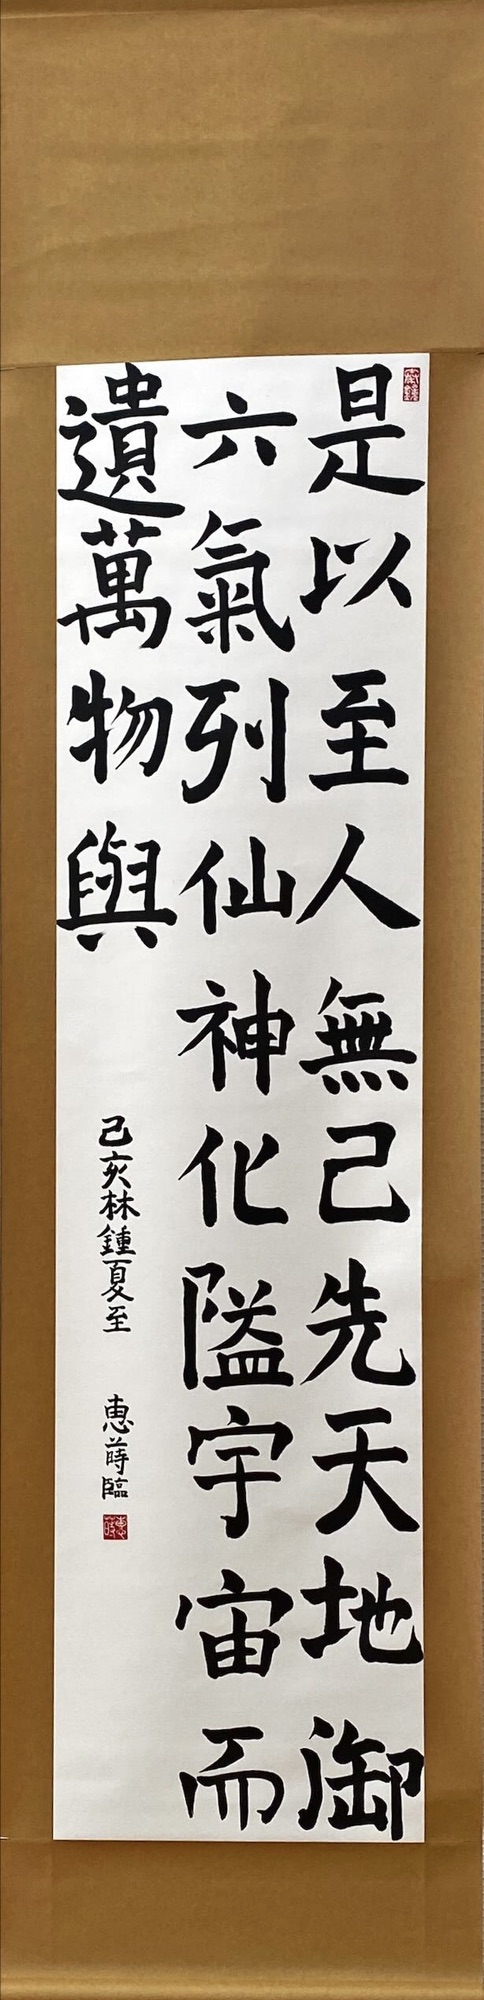 是以至人無己先天地御
六氣列仙神化隘宇宙而
遺萬物與
己亥林鍾夏至
惠蒔臨